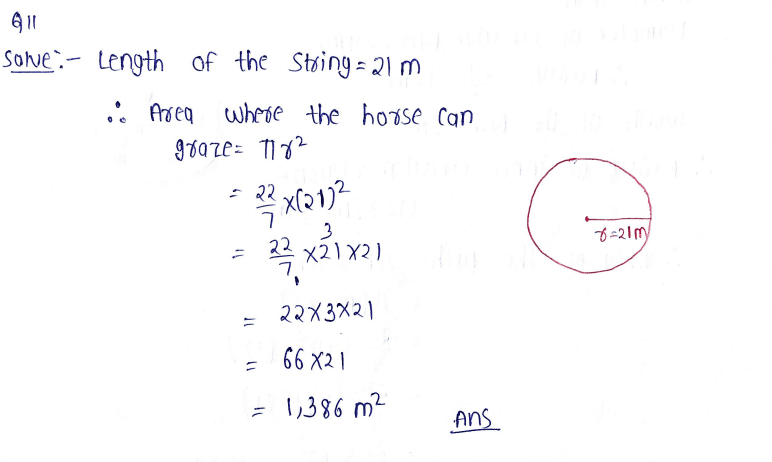 Q11
Solve:- Length of the String = 21 m
∴ Area where the horse can
graze = πr²
= 22/7 × (21)²
= 22/7 × 21 × 21
3
1
= 22×3×21
= 66×21
= 1,386 m²
Ans
r=21m